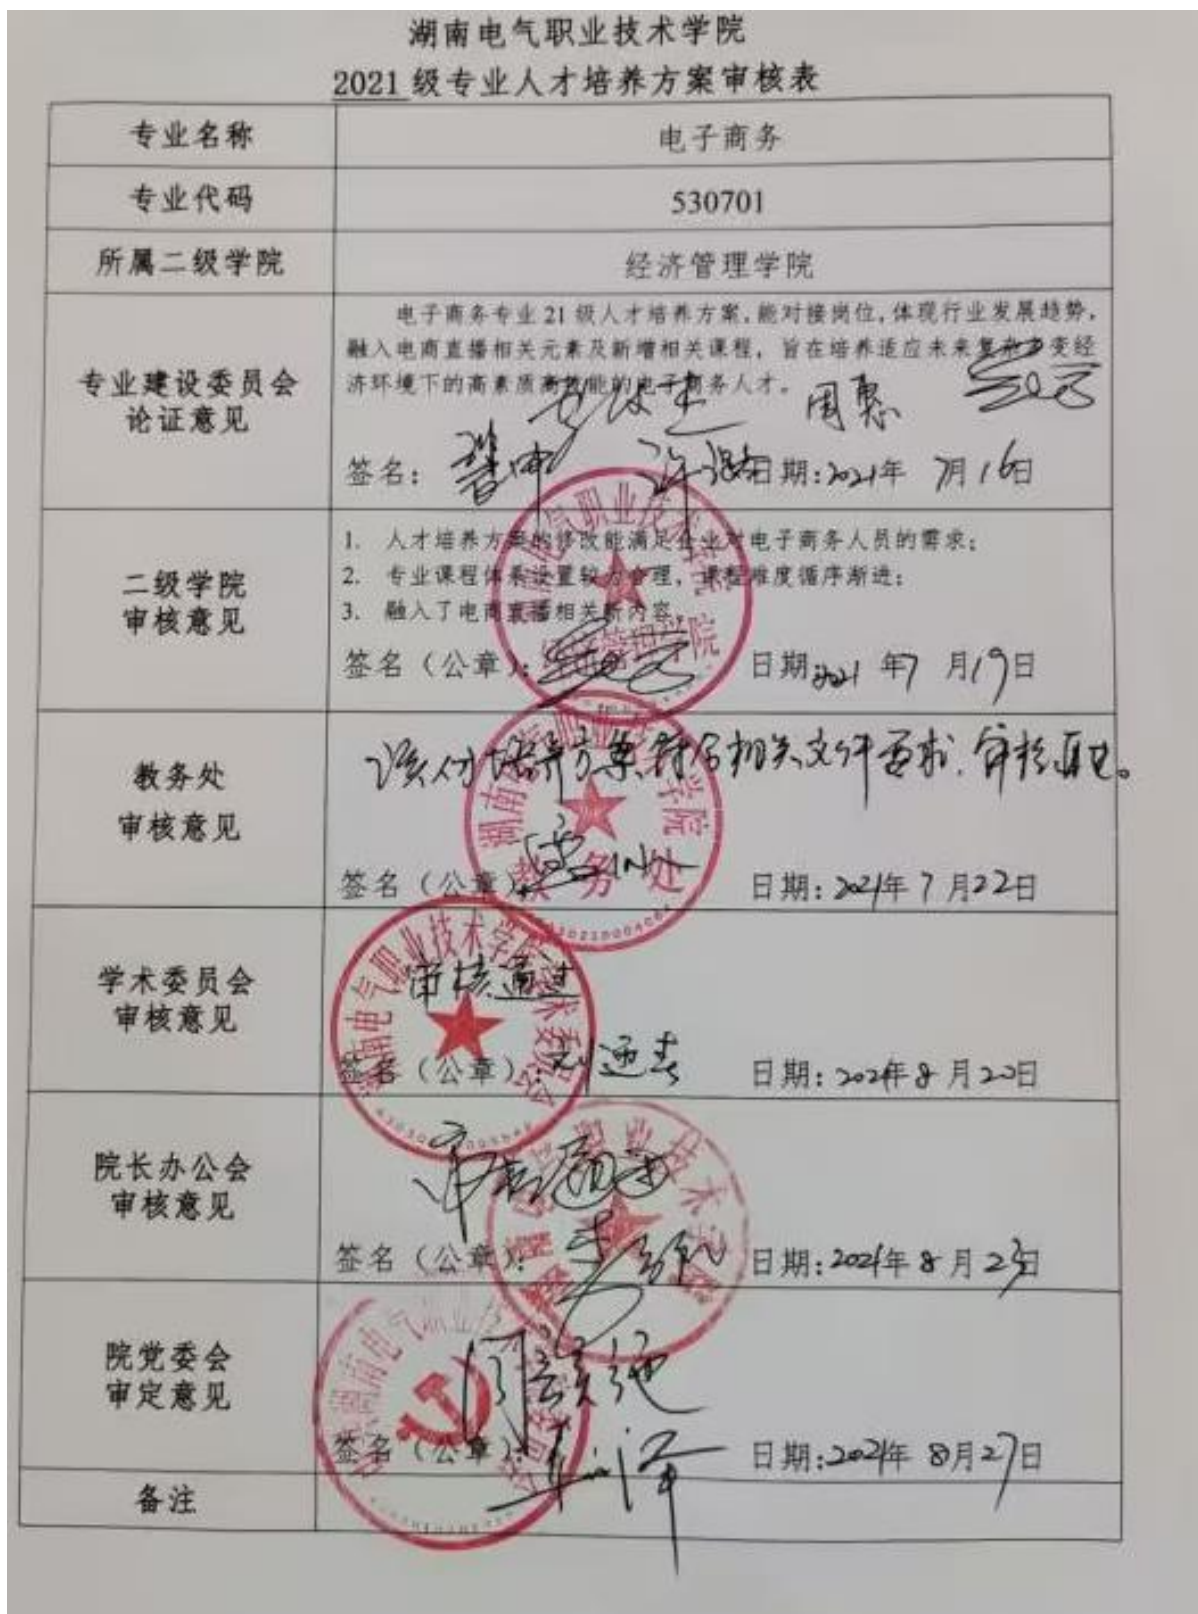 湖南电气职业技术学院
2021 级专业人才培养方案审核表
专业名称
电子商务
专业代码
530701
所属二级学院
经济管理学院
专业建设委员会
论证意见
电子商务专业 21 级人才培养方案,能对接岗位,体现行业发展趋势,
融入电商直播相关元素及新增相关课程，旨在培养适应未来复杂多变经
济环境下的高素质高技能的电子商务人才。
周惠
签名：
日期:2021年 7月16日
二级学院
审核意见
1. 人才培养方案的修改能满足企业对电子商务人员的需求;
2. 专业课程体系设置较为合理，课程难度循序渐进;
3. 融入了电商直播相关新内容
经济管理学院
签名（公章）：
日期2021 年7 月19日
教务处
审核意见
该份培养方案符合相关文件要求,审核通过。
湖南电气职业技术学院
教务处
签名（公章）
日期: 2021年 7 月22日
学术委员会
审核意见
湖南电气职业技术学院学术委员会
审核通过
签名（公章）:
日期: 2021年 8 月20日
院长办公会
审核意见
签名（公章）:
日期:2021年 8 月23日
院党委会
审定意见
同意
签名（公章）:
日期:2021年 8月27日
备注